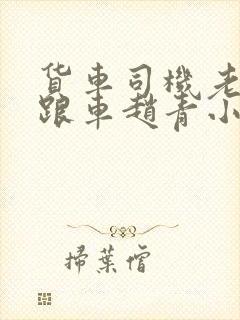 货车司機老
跟車趙青小
掃葉僧